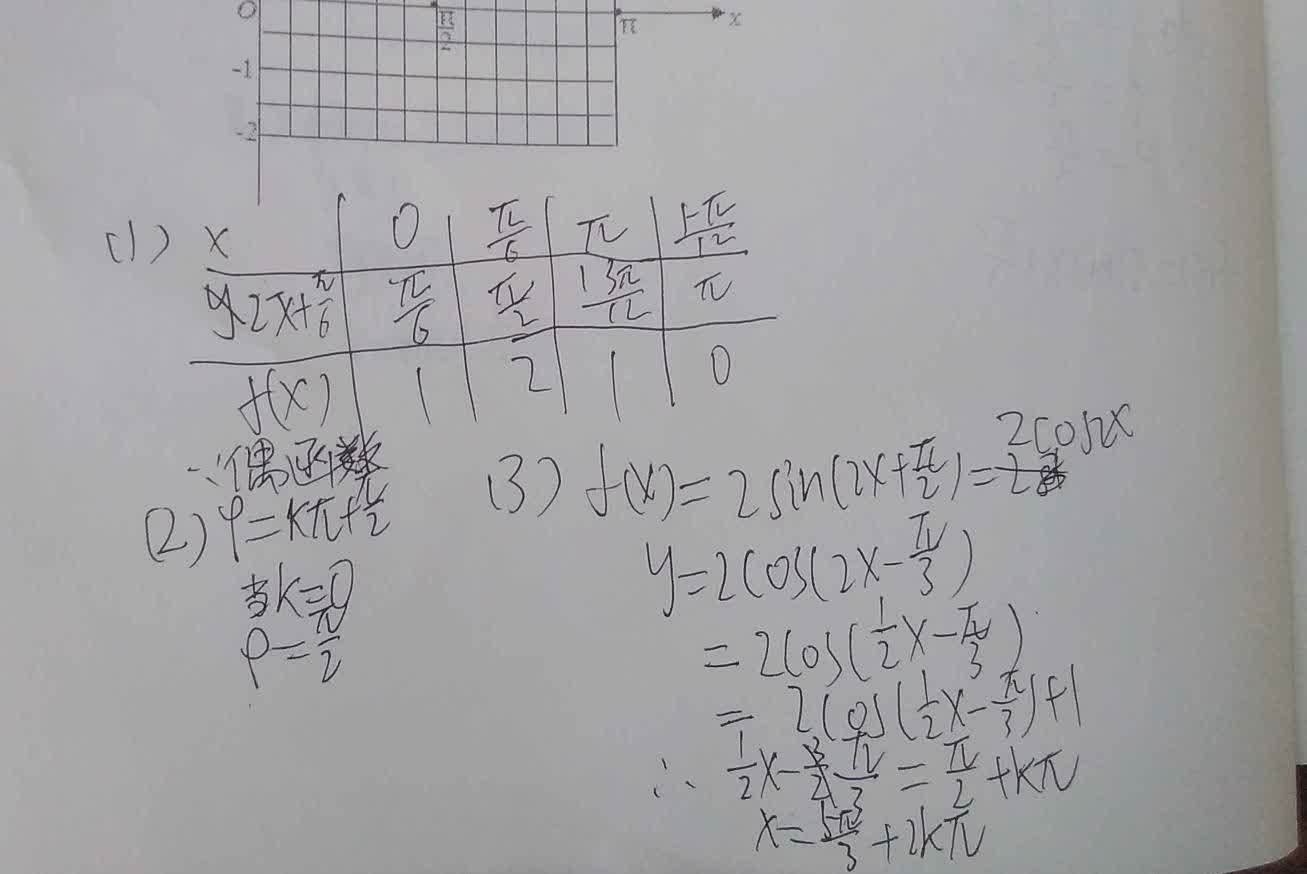 0 π/2 π x
-1
-2
(1) x 0 π/6 π 5π/12
y 2x+π/6 π/6 π/2 13π/12 π
f(x) 1 2 1 0
∵偶函数
(2) φ=kπ+π/2
当k=0
φ=π/2
(3) f(x)=2sin(2x+π/2)=2cos2x
y=2cos(2x-π/3)
=2cos(1/2x-π/3)
=2cos(1/2x-π/3)+1
∴ 1/2x-π/3=π/2+kπ
x=5π/3+2kπ